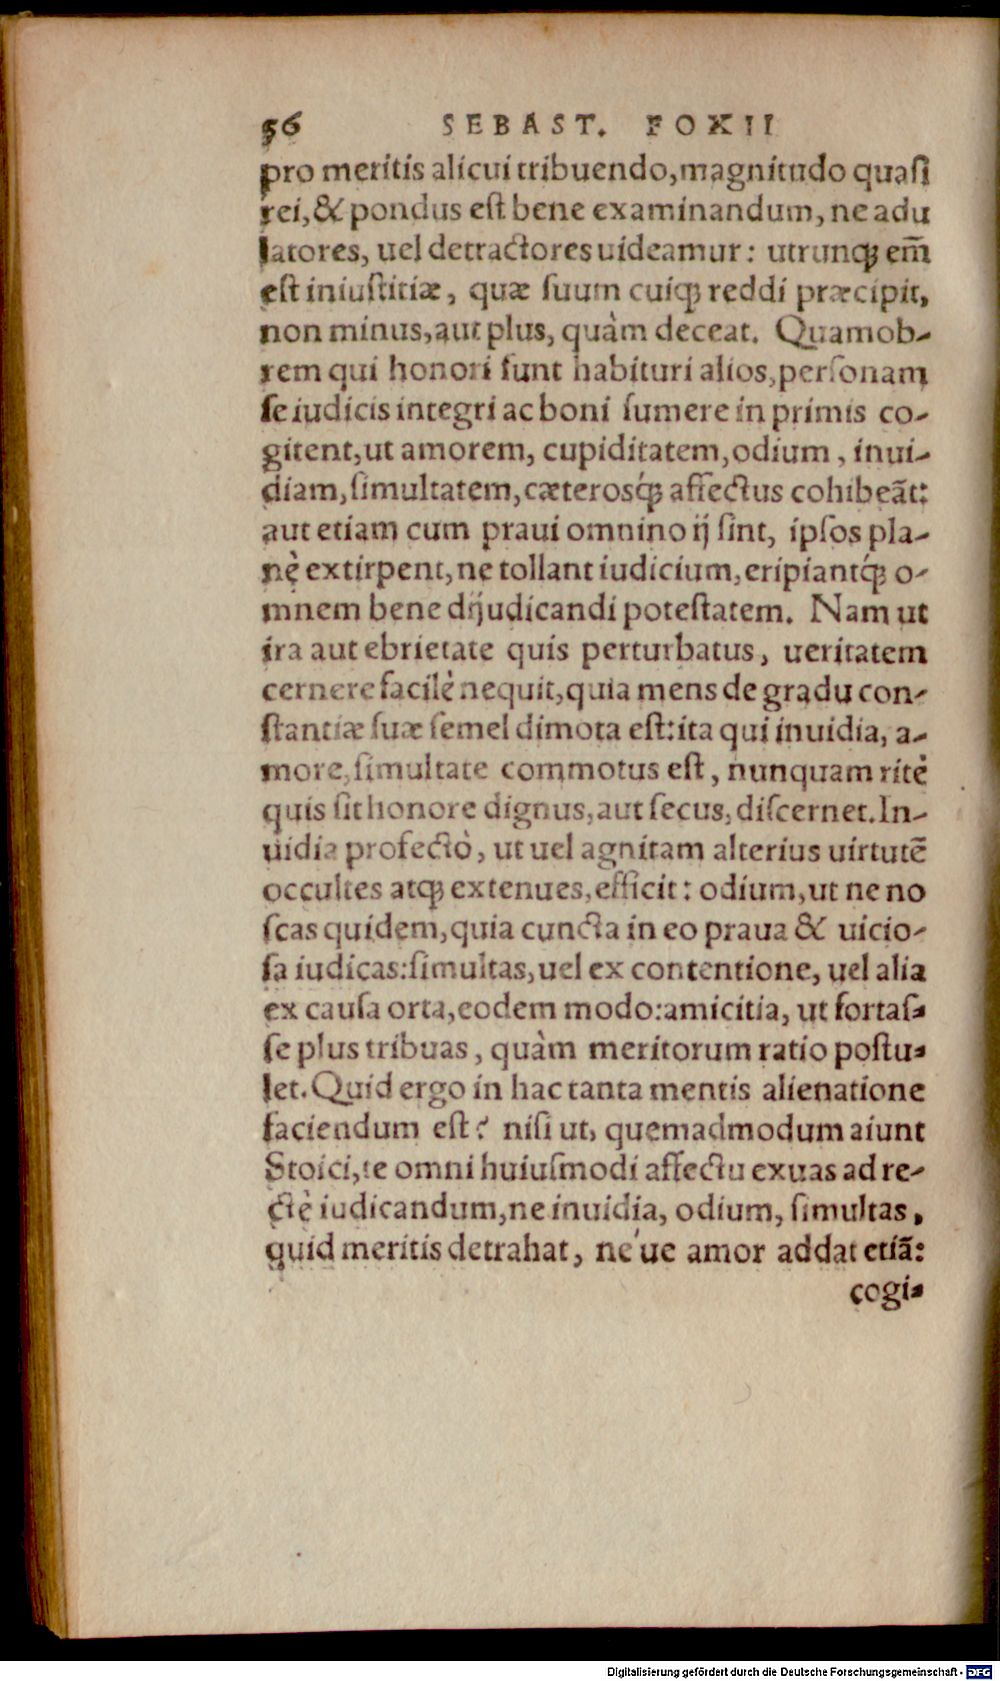 56 SEBAST. FOXII
pro meritis alicui tribuendo, magnitudo quaſi
rei, & pondus eſt bene examinandum, ne adu
latores, uel detractores uideamur: utrunq; em̃
eſt iniuſtitiæ, quæ ſuum cuiq; reddi præcipit,
non minus, aut plus, quàm deceat. Quamob-
rem qui honori ſunt habituri alios, perſonam
ſe iudicis integri ac boni ſumere in primis co-
gitent, ut amorem, cupiditatem, odium, inui-
diam, ſimultatem, cæterosq́; affectus cohibeãt:
aut etiam cum praui omnino ij ſint, ipſos pla-
nè extirpent, ne tollant iudicium, eripiantq́; o-
mnem bene dijudicandi poteſtatem. Nam ut
ira aut ebrietate quis perturbatus, ueritatem
cernere facilè nequit, quia mens de gradu con-
ſtantiæ ſuæ ſemel dimota eſt: ita qui inuidia, a-
more, ſimultate commotus eſt, nunquam ritè
quis ſit honore dignus, aut ſecus, diſcernet. In-
uidia profectò, ut uel agnitam alterius uirtutẽ
occultes atq; extenues, efficit: odium, ut ne no
ſcas quidem, quia cuncta in eo praua & uicio-
ſa iudicas: ſimultas, uel ex contentione, uel alia
ex cauſa orta, eodem modo: amicitia, ut fortaſ-
ſe plus tribuas, quàm meritorum ratio poſtu-
let. Quid ergo in hac tanta mentis alienatione
faciendum eſt? niſi ut, quemadmodum aiunt
Stoici, te omni huiuſmodi affectu exuas ad re-
ctè iudicandum, ne inuidia, odium, ſimultas,
quid meritis detrahat, ne'ue amor addat etiã:
cogi-
Digitalisierung gefördert durch die Deutsche Forschungsgemeinschaft - DFG